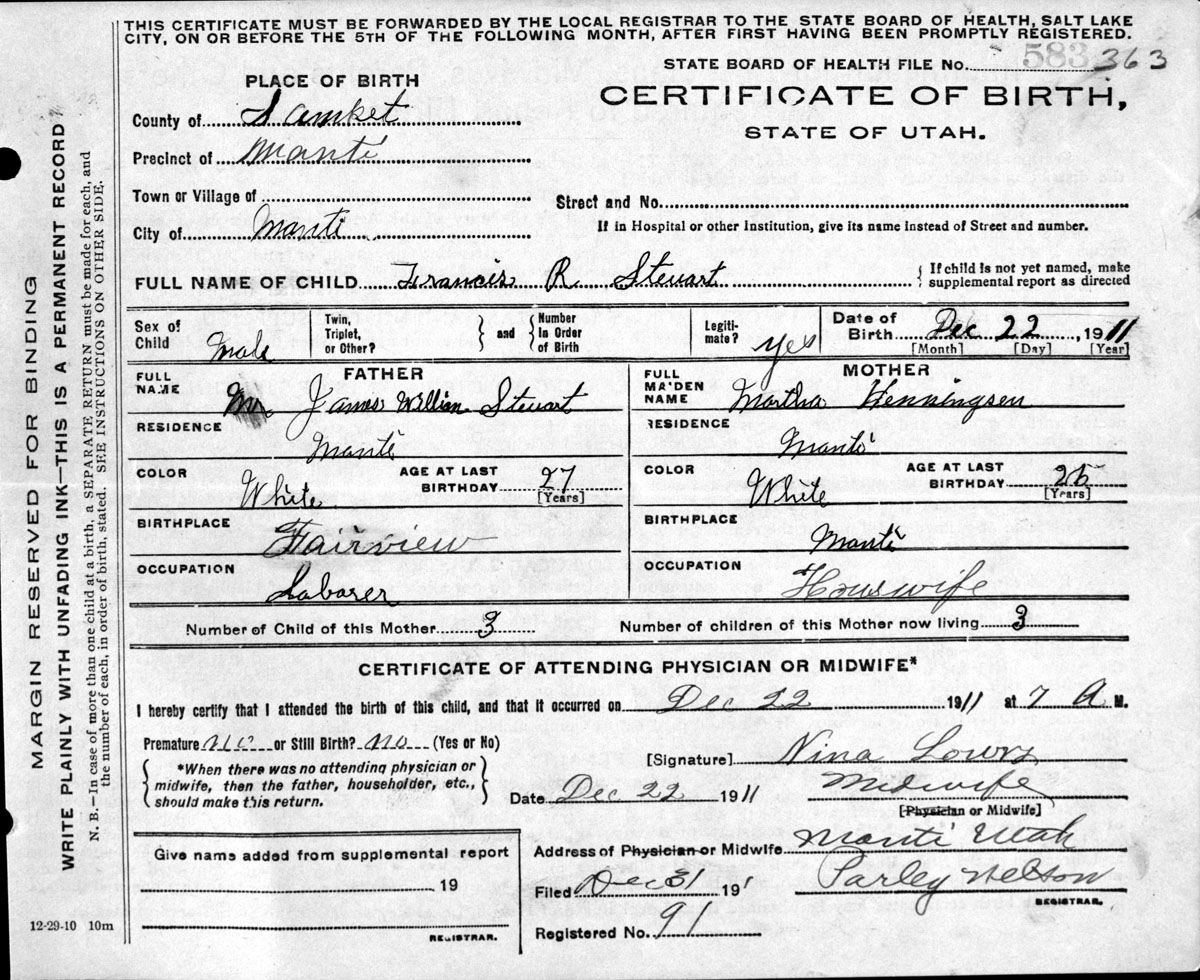 THIS CERTIFICATE MUST BE FORWARDED BY THE LOCAL REGISTRAR TO THE STATE BOARD OF HEALTH, SALT LAKE
CITY, ON OR BEFORE THE 5TH OF THE FOLLOWING MONTH, AFTER FIRST HAVING BEEN PROMPTLY REGISTERED.
STATE BOARD OF HEALTH FILE No. 583 363
PLACE OF BIRTH
CERTIFICATE OF BIRTH,
STATE OF UTAH.
County of Sanpet
Precinct of Manti
Town or Village of
Street and No.
City of Manti
If in Hospital or other Institution, give its name instead of Street and number.
FULL NAME OF CHILD Francis R Stewart
If child is not yet named, make
supplemental report as directed
Sex of Child Male
Twin, Triplet, or Other?
and
Number in Order of Birth
Legiti-mate? yes
Date of Birth Dec 22, 1911
[Month] [Day] [Year]
FATHER
FULL NAME Mr. James William Stewart
RESIDENCE
Manti
COLOR White
AGE AT LAST BIRTHDAY 27
[Years]
BIRTHPLACE
Fairview
OCCUPATION
Laborer
MOTHER
FULL MAIDEN NAME Martha Henningsen
RESIDENCE
Manti
COLOR White
AGE AT LAST BIRTHDAY 25
[Years]
BIRTHPLACE
Manti
OCCUPATION
Houswife
Number of Child of this Mother 3
Number of children of this Mother now living 3
CERTIFICATE OF ATTENDING PHYSICIAN OR MIDWIFE*
I hereby certify that I attended the birth of this child, and that it occurred on Dec 22 1911 at 7 A M.
Premature No or Still Birth? no (Yes or No)
*When there was no attending physician or
midwife, then the father, householder, etc.,
should make this return.
[Signature] Nina Lowry
Midwife
Date Dec 22 1911
[Physician or Midwife]
Address of Physician or Midwife Manti Utah
Filed Dec 31 191
Parley Nelson
REGISTRAR.
Registered No. 91
Give name added from supplemental report
19
REGISTRAR.
12-29-10 10m
MARGIN RESERVED FOR BINDING
WRITE PLAINLY WITH UNFADING INK—THIS IS A PERMANENT RECORD
N. B.—In case of more than one child at a birth, a SEPARATE RETURN must be made for each, and
the number of each, in order of birth, stated. SEE INSTRUCTIONS ON OTHER SIDE.